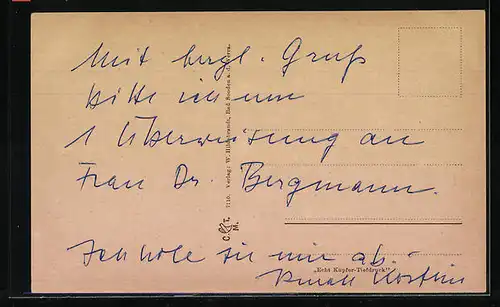 Mit herzl. Gruß
bitte ich um
1 Überweisung an
Frau Dr. Bergmann.
Ich hole sie mir ab.
7110. Verlag: W. Hildebrandt, Bad Sooden a. d. Werra.
C. T. M.
„Echt Kupfer-Tiefdruck"